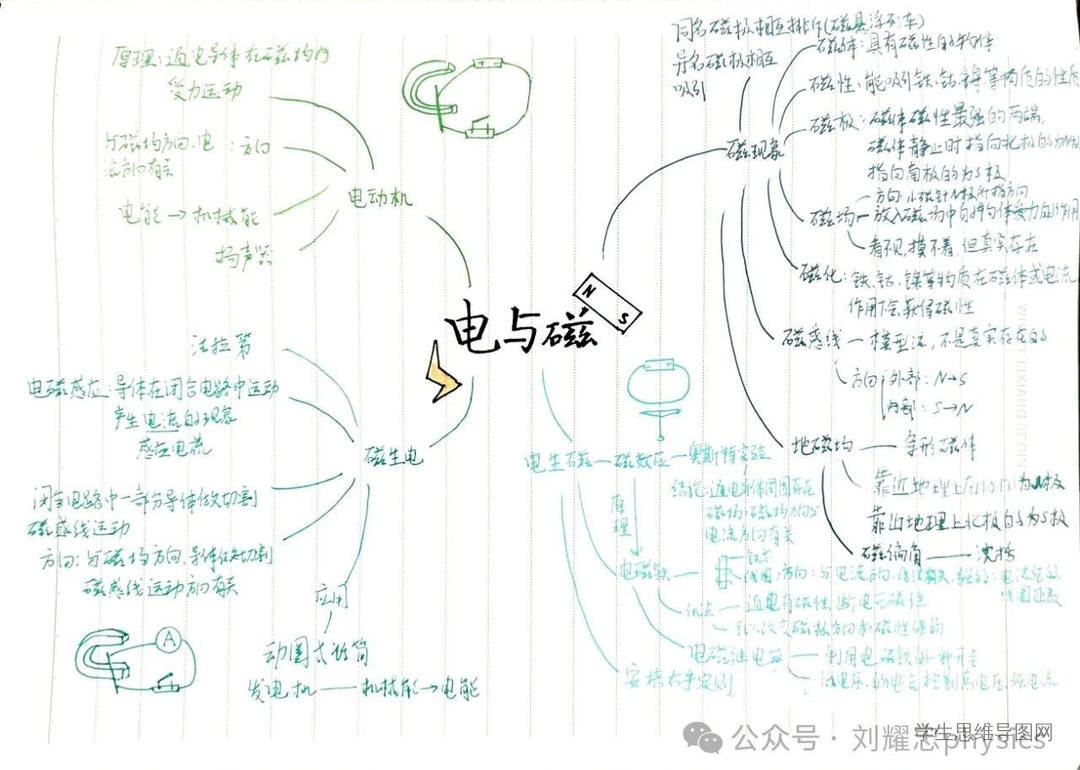 电与磁
N
S
电动机
原理：通电导体在磁场内
受力运动
与磁场方向、电
流方向有关
：方向
电能→机械能
扬声器
磁现象
同名磁极相互排斥(磁悬浮列车)
异名磁极相互
吸引
磁体：具有磁性的物体
磁性：能吸引铁、钴、镍等物质的性质
磁极：磁体磁性最强的两端，
磁体静止时指向北极的为N极
指向南极的为S极
方向：小磁针N极所指方向
磁场—放入磁场中的物体受力的作用
看不见，摸不着，但真实存在
磁化：铁、钴、镍等物质在磁体或电流
作用下会获得磁性
磁感线—模型法，不是真实存在的
方向：外部：N→S
内部：S→N
地磁场—条形磁体
靠近地理上南极的为N极
靠近地理上北极的为S极
磁偏角—沈括
磁生电
法拉第
电磁感应：导体在闭合电路中运动
产生电流的现象
感应电流
闭合电路中一部分导体做切割
磁感线运动
方向：与磁场方向、导体做切割
磁感线运动方向有关
应用
动圈式话筒
发电机—机械能→电能
A
电生磁—磁效应—奥斯特实验
结论：通电导体周围存在
磁场，磁场方向与
电流方向有关
原理
电磁铁
铁芯
线圈，方向：与电流方向
优点—通电有磁性，断电无磁性
可以改变磁极方向和磁性强弱
电磁继电器—利用电磁铁的一种开关
低电压、弱电流控制高电压、强电流
安培右手定则
公众号·刘耀忠physics
学生思维导图网